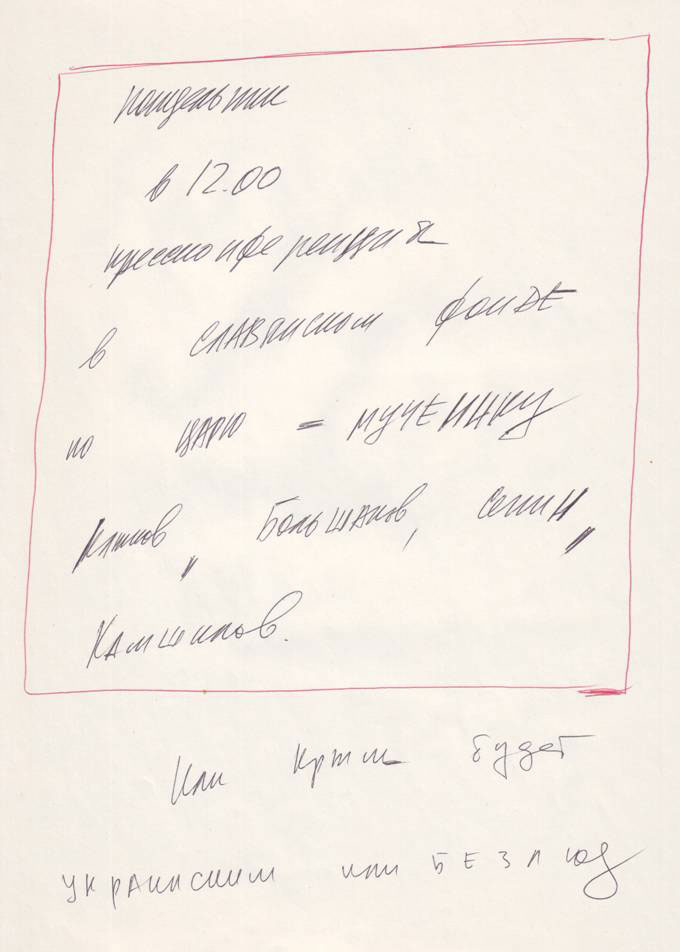 понедельник
в 12.00
прессконференция
в СЛАВЯНСКОМ ФОНДЕ
по ЦАРЮ = МУЧЕНИКУ
Клыков, БОЛЬШАКОВ, Сенин,
КАМШИЛОВ.
Или крым будет
УКРАИНСКИМ или БЕЗЛЮД